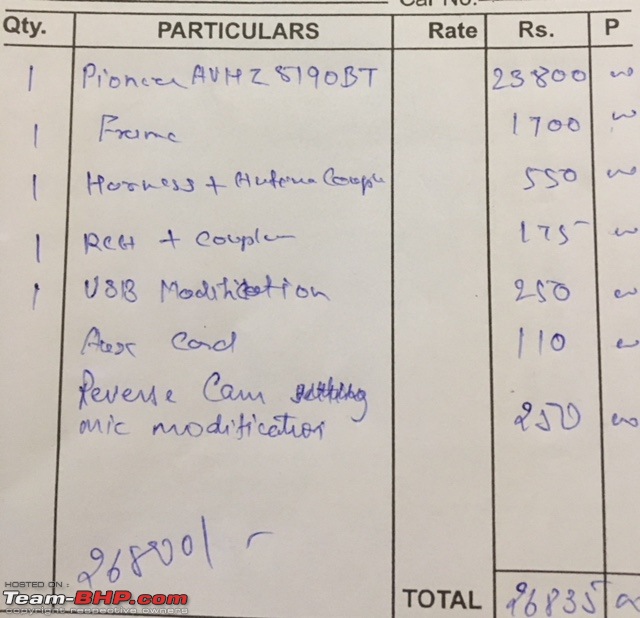 Car No.
Qty. PARTICULARS Rate Rs. P
1 Pioneer AVHZ 5190BT 23800 00
1 Frame 1700 00
1 Harness + Antena Couple 550 00
1 + Coupler 175 00
1 USB Modification 250 00
Aux Cord 110 00
Reverse Cam
mic modification 250 00
26800/-
TOTAL 26835 00
HOSTED ON :
Team-BHP.com
copyright respective owners